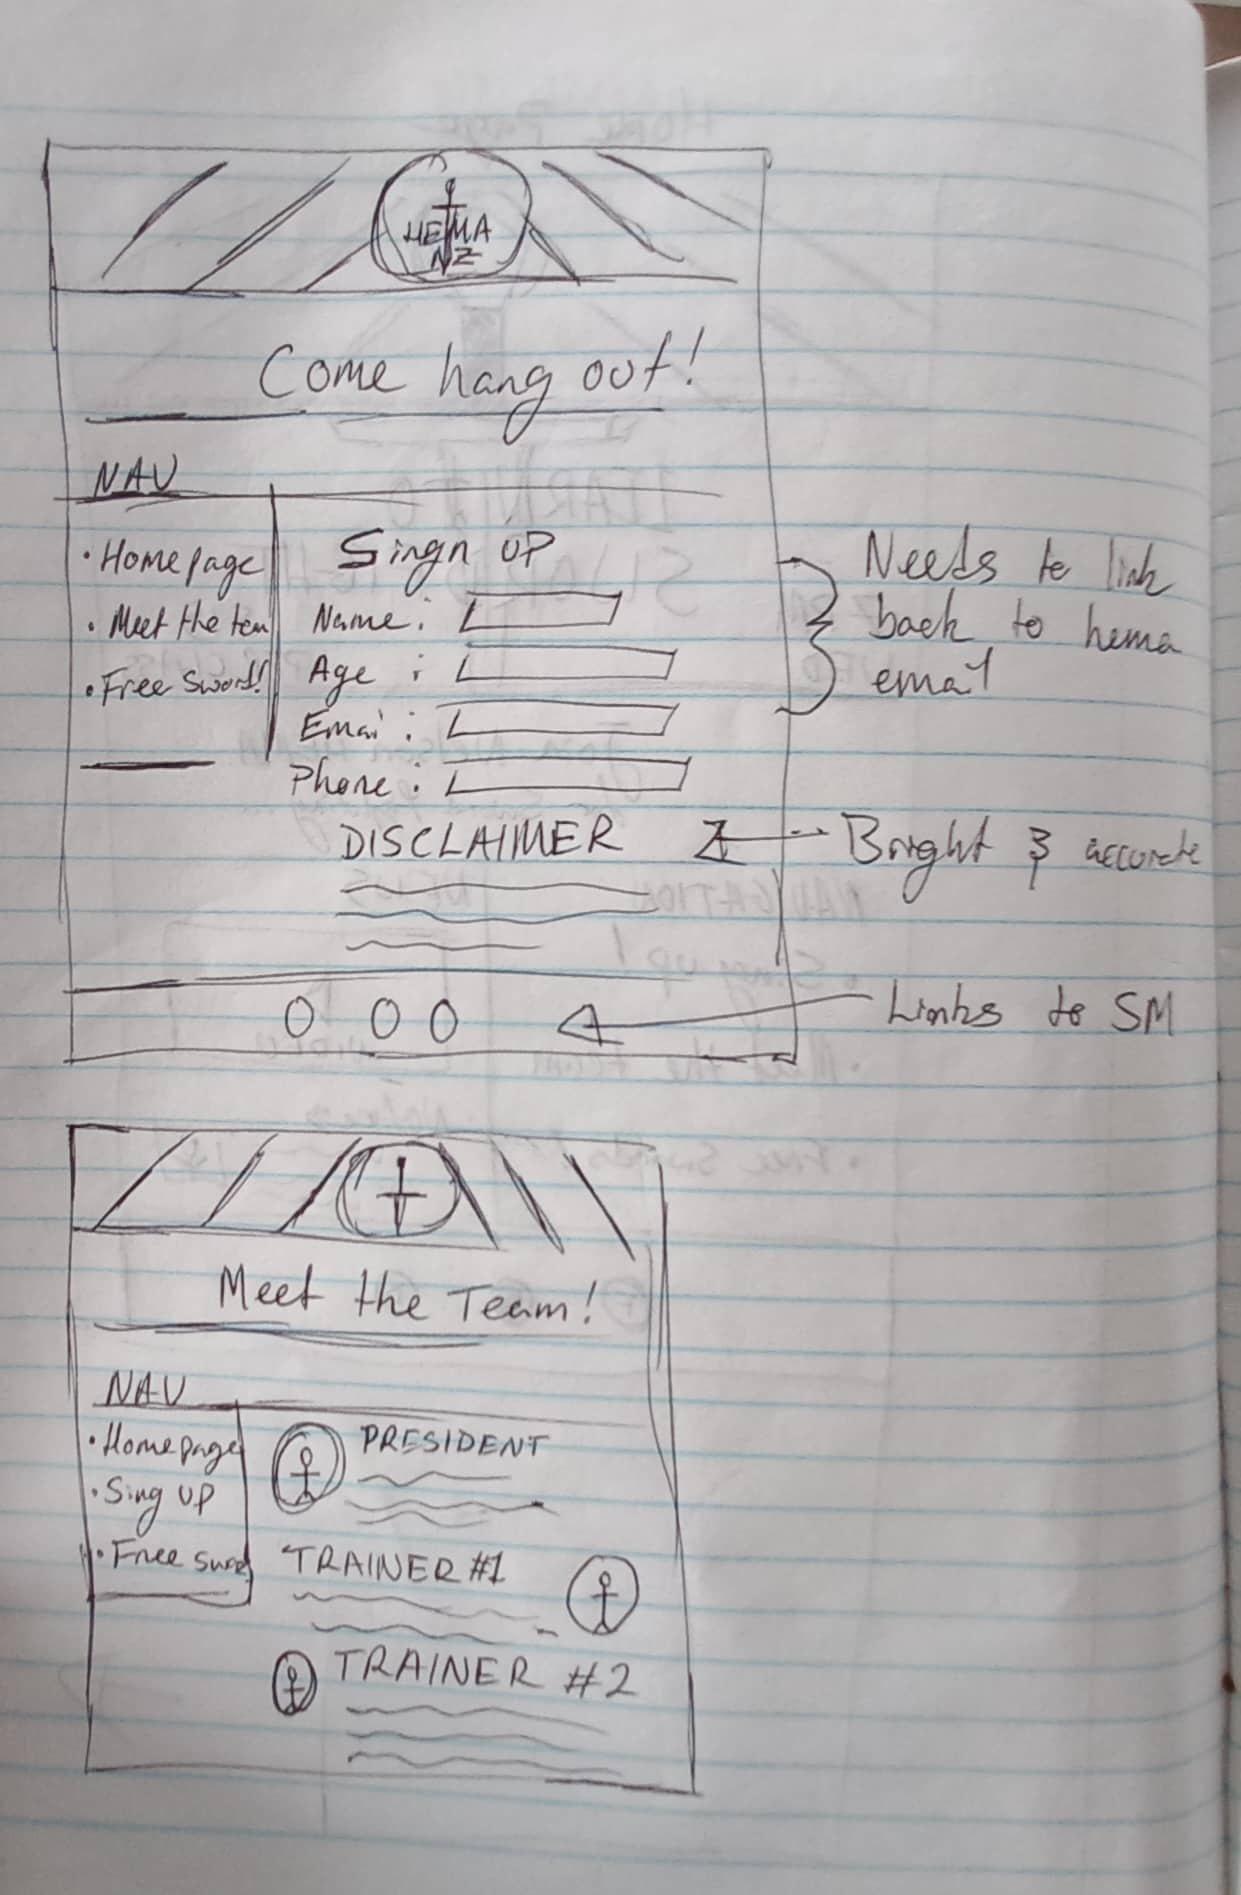 HEMA
NZ
Come hang out!
NAV
• Homepage
• Meet the team
• Free Sword!
Singn UP
Name :
Age :
Emai :
Phone :
Needs to link
back to hema
email
DISCLAIMER
Bright & accurate
Links to SM
Meet the Team!
NAV
• Homepage
• Sing UP
• Free sword
PRESIDENT
TRAINER #1
TRAINER #2